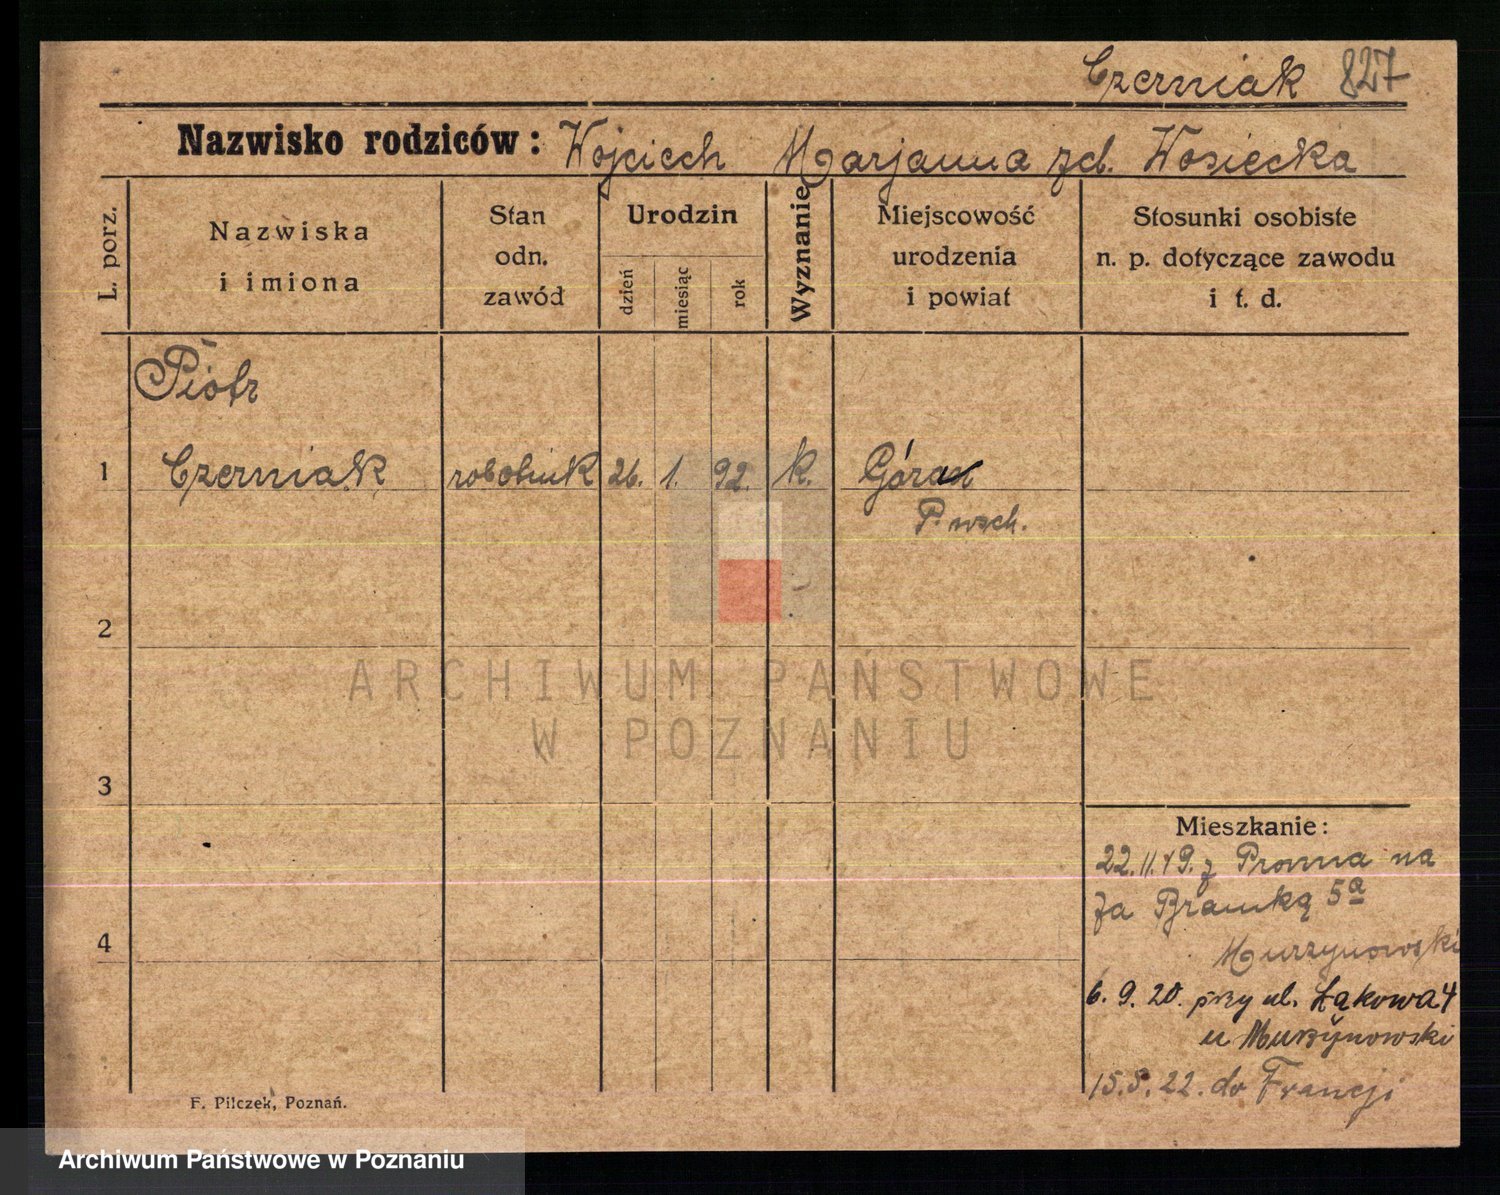 Czerniak 827
Nazwisko rodziców: Wojciech Marjanna zd. Wosiecka
L. porz.
Nazwiska
i imiona
Stan
odn.
zawód
Urodzin
dzień
miesiąc
rok
Wyznanie
Miejscowość
urodzenia
i powiat
Stosunki osobiste
n. p. dotyczące zawodu
i t. d.
Piotr
1 Czerniak robotnik 26. 1. 92. k. Góra
P. wsch.
2
ARCHIWUM PAŃSTWOWE
W POZNANIU
3
Mieszkanie:
22.11.19. z na
za Bramką 5a
Murzynowski
4
6. 9. 20. przy ul. Łąkowa 4
u Murzynowski
15.5.22. do Francji
F. Pilczek, Poznań.
Archiwum Państwowe w Poznaniu